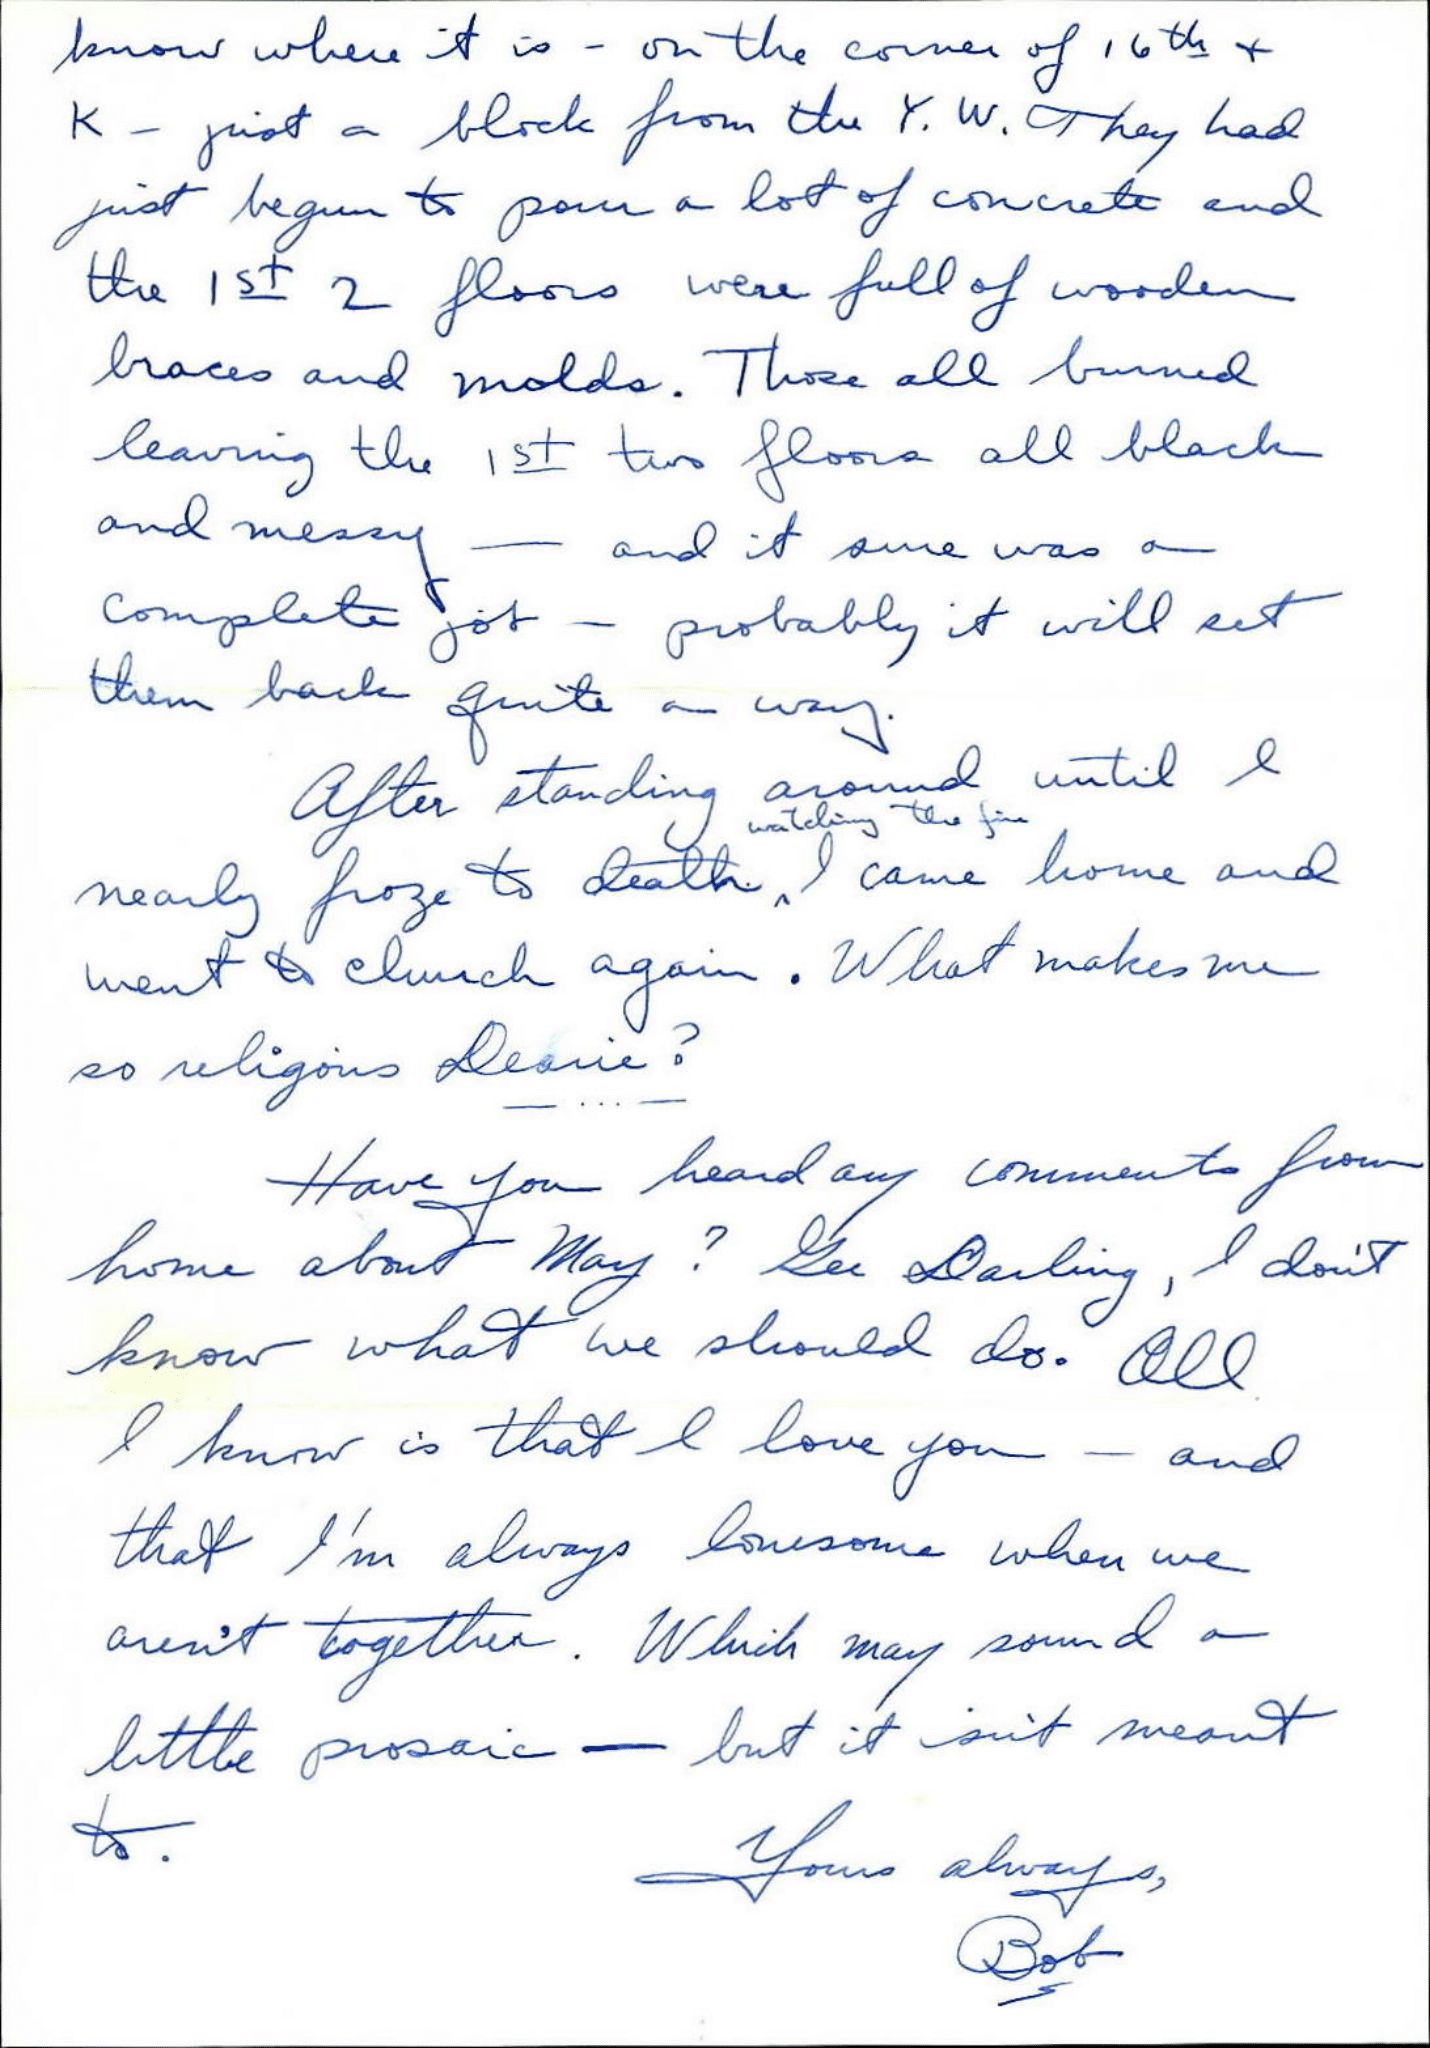 know where it is - on the corner of 16th +
K - just a block from the Y. W. They had
just begun to pour a lot of concrete and
the 1st 2 floors were full of wooden
braces and molds. Those all burned
leaving the 1st two floors all black
and messy — and it sure was a
complete job - probably it will set
them back quite a way.
After standing around until I
watching the fire
nearly froze to death ^ I came home and
went to church again. What makes me
so religious Dearie?
— ... —
Have you heard any comments from
home about May? Gee Darling, I don't
know what we should do. All
I know is that I love you - and
that I'm always lonesome when we
aren't together. Which may sound a
little prosaic — but it isn't meant
to.
Yours always,
Bob